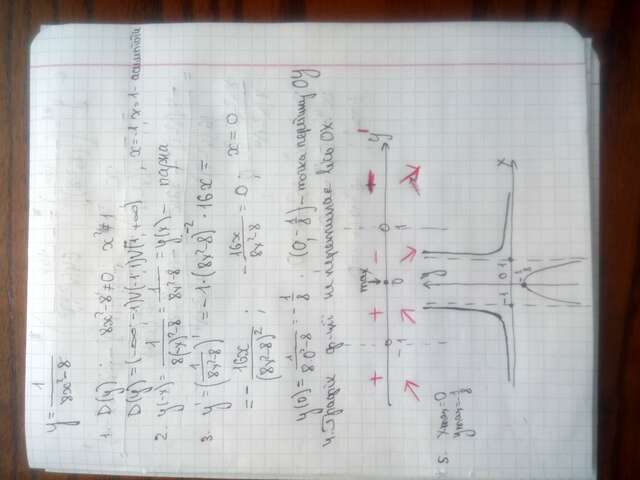 y = 1/(8x²-8)
1. D(y): 8x²-8≠0, x²≠1
D(y) = (-∞; -1)∪(-1; 1)∪(1; +∞), x=-1, x=1 - асимптоти
2. y(-x) = 1/(8(-x)²-8) = 1/(8x²-8) = y(x) - парна
3. y' = (1/(8x²-8))' = -1·(8x²-8)⁻²·16x =
= - 16x/(8x²-8)²; - 16x/(8x²-8) = 0; x = 0
y(0) = 1/(8·0²-8) = -1/8. (0; -1/8) - точка перетину OY
4. Графік ф-ції не перетинає вісь OX.
max y'
+ + - -
-1 0 1
5. xmax = 0
ymax = -1/8
y
-1 0 1 x
-1/8